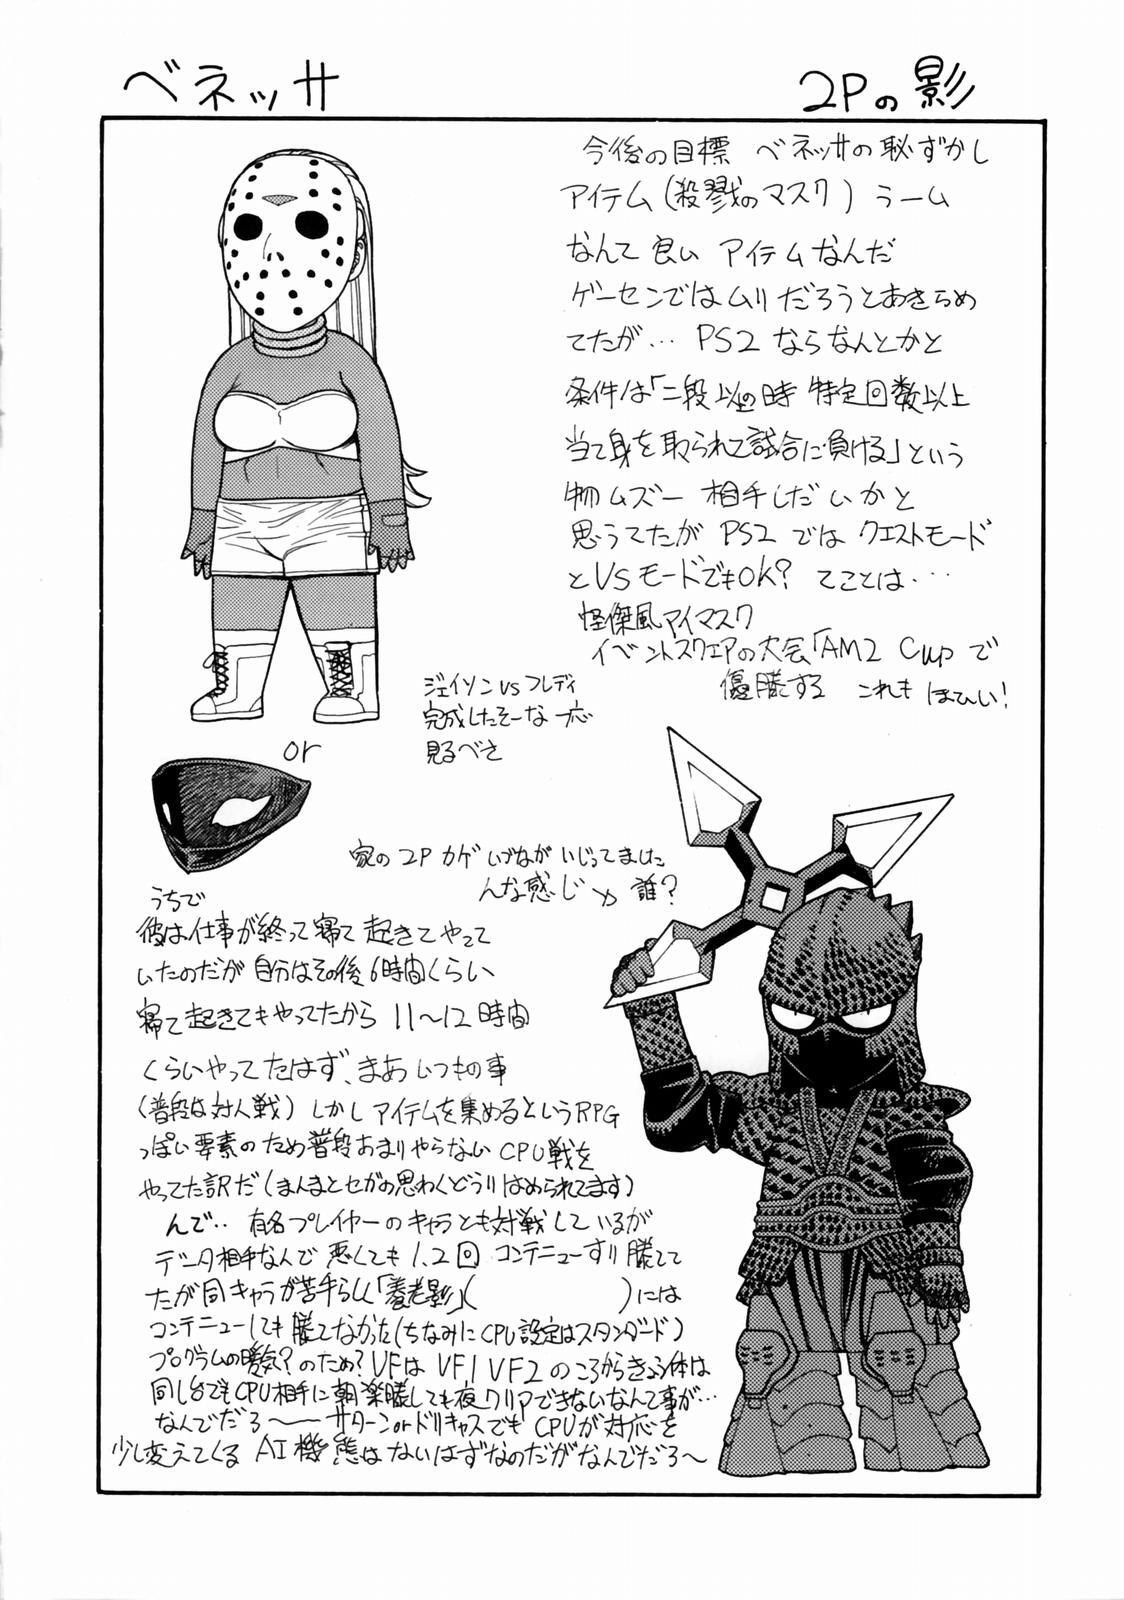 ベネッサ
2Pの影
今後の目標 ベネッサの恥ずかし
アイテム(殺戮のマスク) うーム
なんて良い アイテムなんだ
ゲーセンではムリだろうとあきらめ
てたが… PS2 ならなんとかと
条件は「二段以上の時 特定回数以上
当て身を取られて試合に負ける」という
物 ムズー 相手しだいかと
思うてたが PS2 では クエストモード
とVSモードでもOK? てことは…
怪傑風アイマスク
イベントスクエアの大会「AM2 Cup で
優勝する これも ほひぃ!
ジェイソン VS フレディ
完成したそーな 一応
見るべさ
or
家の 2P カゲ いづなが いじってました
んな感じ 誰?
うちで
彼は仕事が終って寝て起きてやって
いたのだが 自分はその後6時間くらい
寝て起きてもやってたから 11～12時間
くらいやってたはず、まあいつもの事
(普段は対人戦) しかし アイテムを集めるというRPG
っぽい要素のため普段あまりやらない CPU戦を
やってた訳だ(まんまとセガの思わくどうりはめられてます)
んで‥ 有名プレイヤーのキャラとも対戦しているが
データ相手なんで 悪くても 1.2回 コンテニューすりゃ勝てて
たが同キャラが苦手らしく「養老影」( )には
コンテニューしても勝てなかった(ちなみにCPU設定はスタンダード)
プログラムの暖気?のため? VFは VF1 VF2 のころからきょう体は
同じ台でもCPU相手に朝 楽勝しても夜 クリアできないなんて事が…
なんでだろ～ サターン or ドリキャスでも CPUが対応を
少し変えてくる AI機能はないはずなのだがなんでだろ～